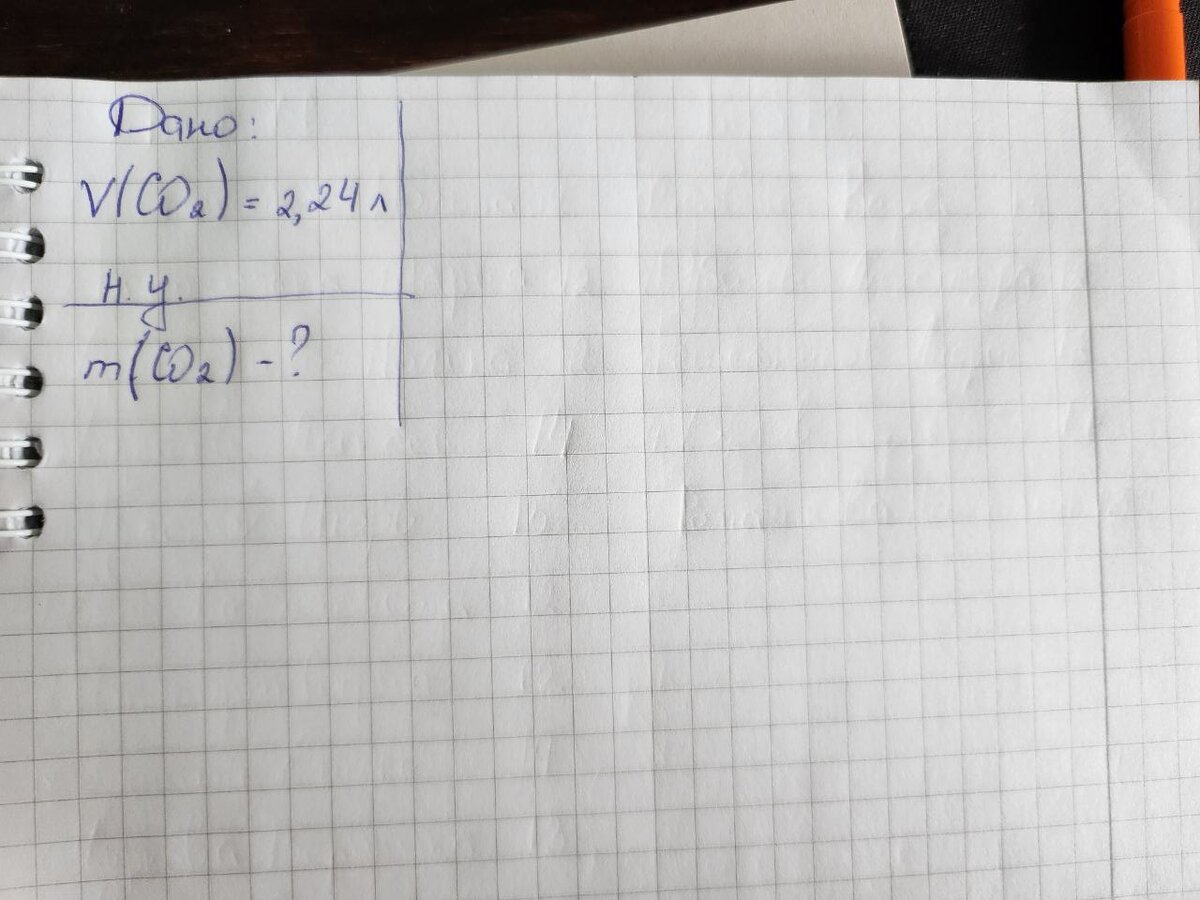 Дано:
V(CO₂) = 2,24 л
н.у.
m(CO₂) - ?